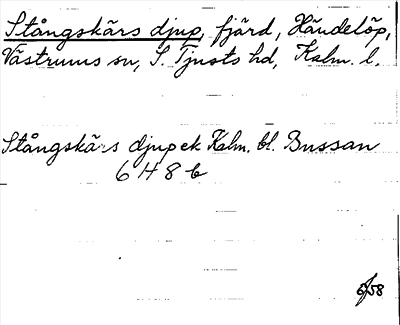 Stångskärs djup, fjärd, Händelöp,
Västrums sn, S. Tjusts hd, Kalm. l.
Stångskärs djup ek Kalm. bl. Bussan
6 H 8 b
6/58